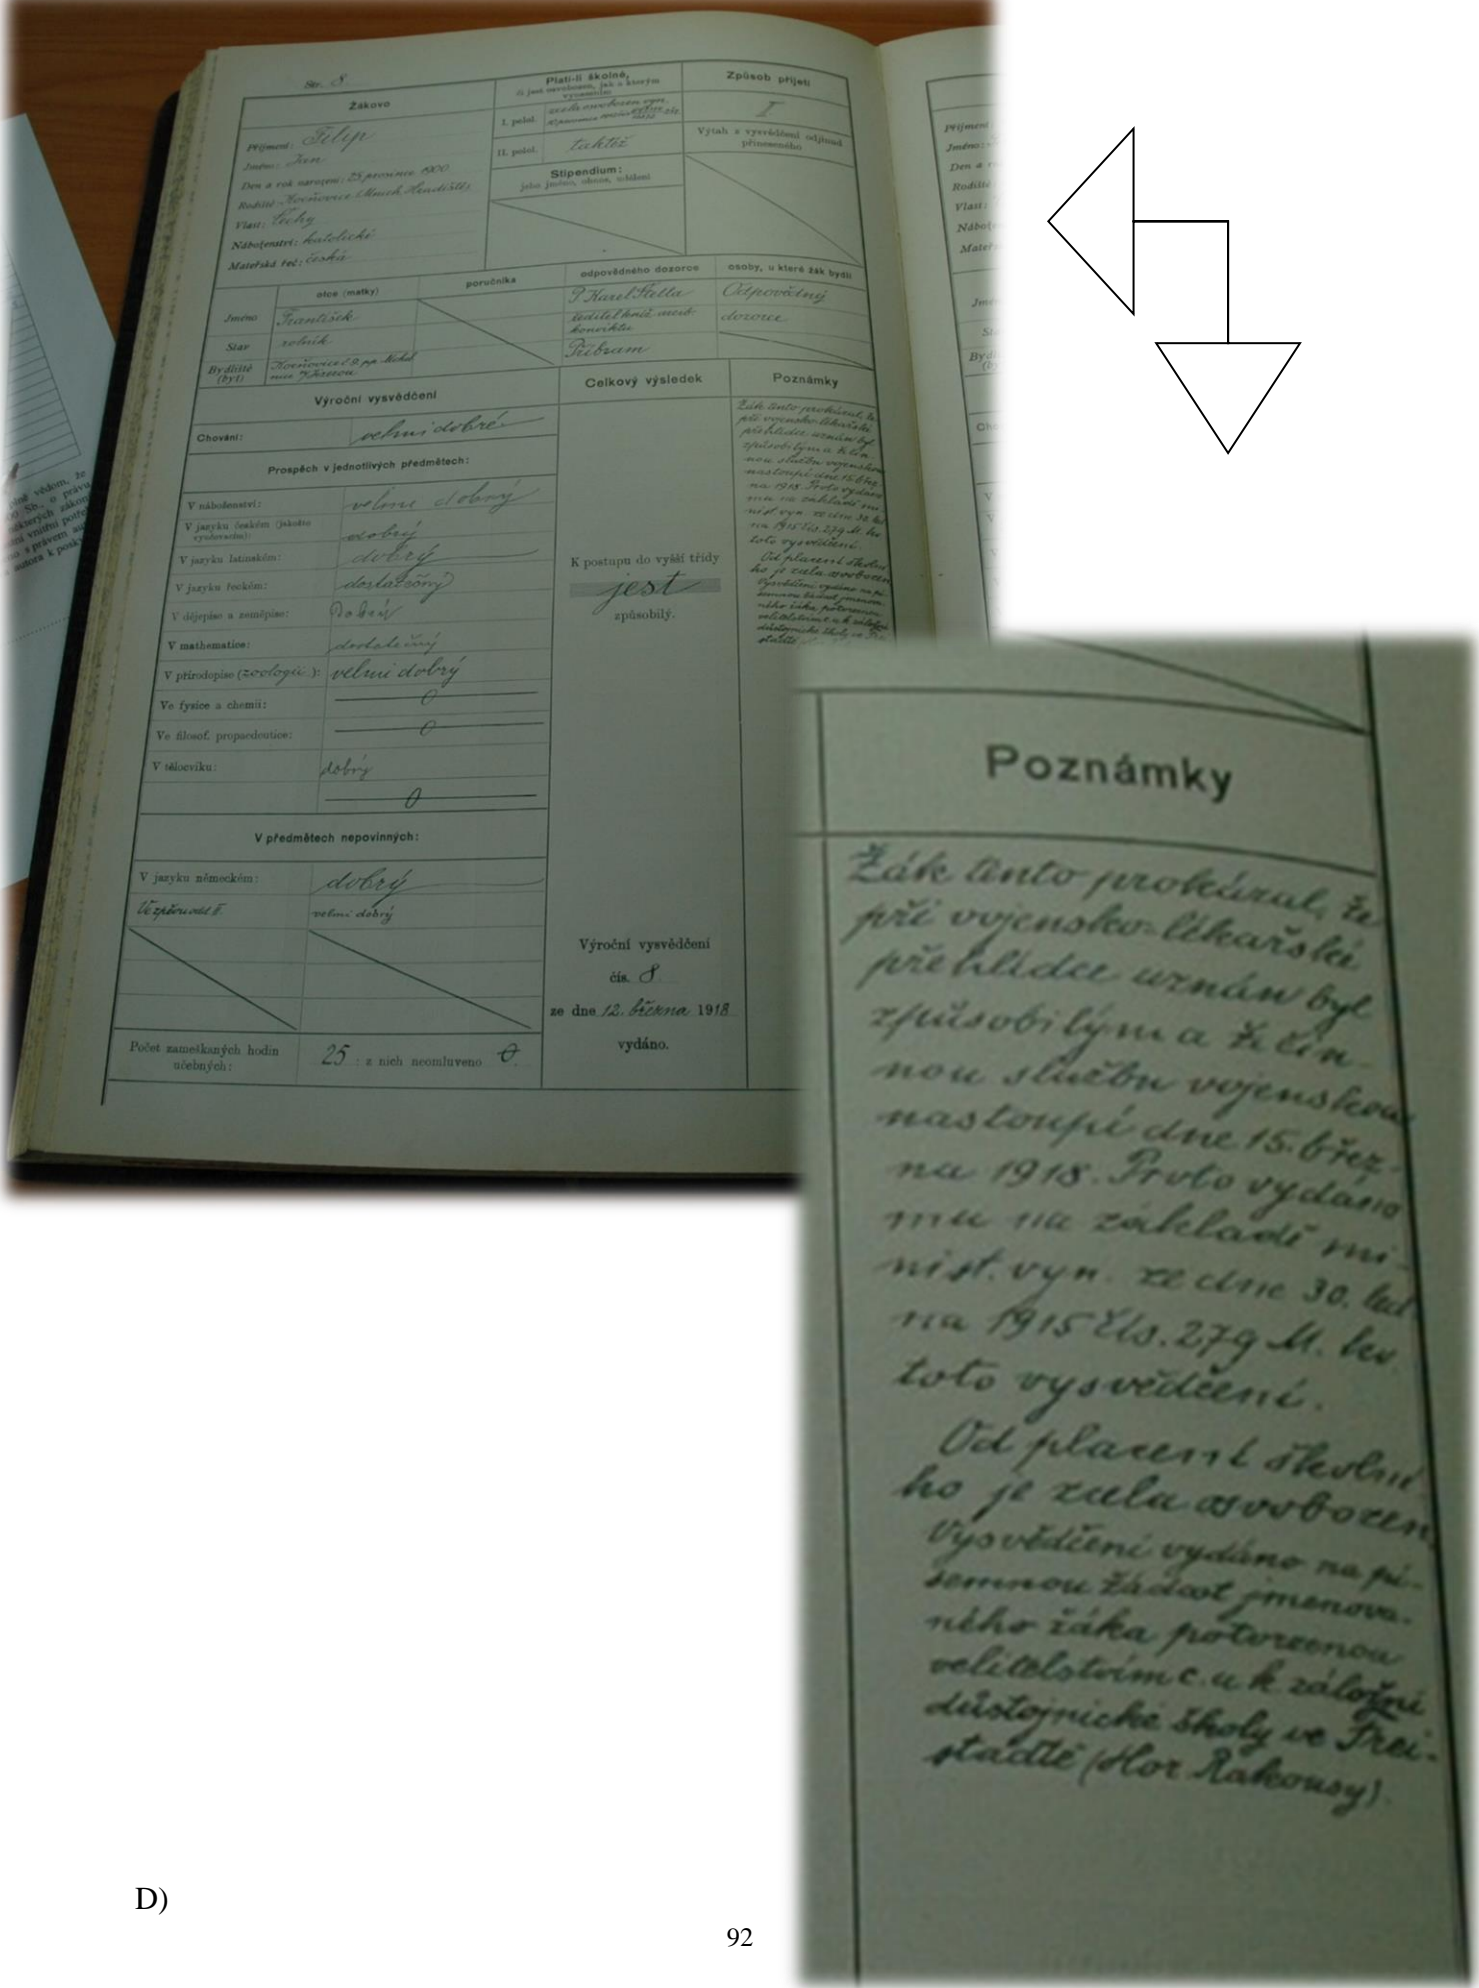 Str. 8.
Žákovo
Příjmení: Filip
Jméno: Jan
Den a rok narození: 25 prosince 1900
Rodiště: Mnich. Hradiště
Vlast: Čechy
Náboženství: katolické
Mateřská řeč: česká
Platí-li školné,
či jest osvobozen, jak a kterým
vynesením
I. polol. zcela osvobozen vyn.
II. polol. taktéž
Stipendium:
jeho jméno, obnos, udělení
Způsob přijetí
I
Výtah z vysvědčení odjinud
přineseného
otce (matky)
poručníka
odpovědného dozorce
osoby, u které žák bydlí
Jméno František P. Karel Stella Odpovědný
Stav rolník ředitel kníž. arcib. konviktu dozorce
Bydliště (byt) Příbram
Výroční vysvědčení
Celkový výsledek
Poznámky
Chování: velmi dobré
Prospěch v jednotlivých předmětech:
V náboženství: velmi dobrý
V jazyku českém (jakožto vyučovacím): dobrý
V jazyku latinském: dobrý
V jazyku řeckém: dostatečný
V dějepise a zeměpise: Dobrý
V mathematice: dostatečný
V přírodopise (zoologii): velmi dobrý
Ve fysice a chemii: 0
Ve filosof. propaedeutice: 0
V tělocviku: dobrý
0
V předmětech nepovinných:
V jazyku německém: dobrý
Ve zpěvu odd. II. velmi dobrý
Počet zameškaných hodin
učebných: 25 : z nich neomluveno 0.
K postupu do vyšší třídy
jest
způsobilý.
Výroční vysvědčení
čís. 8
ze dne 12. března 1918
vydáno.
Poznámky
Žák tento prokázal, že
při vojensko-lékařské
přehlídce uznán byl
způsobilým a že čin-
nou službu vojenskou
nastoupí dne 15. břez-
na 1918. Proto vydáno
mu na základě mi-
nist. vyn. ze dne 30. led
na 1915 čís. 279 M. kv
toto vysvědčení.
Od placení školné
ho je zcela osvobozen.
Vysvědčení vydáno na pí-
semnou žádost jmenova-
ného žáka potvrzenou
velitelstvím c. u k. záložní
důstojnické školy ve Frei-
stadtě (Hor. Rakousy).
D)
92